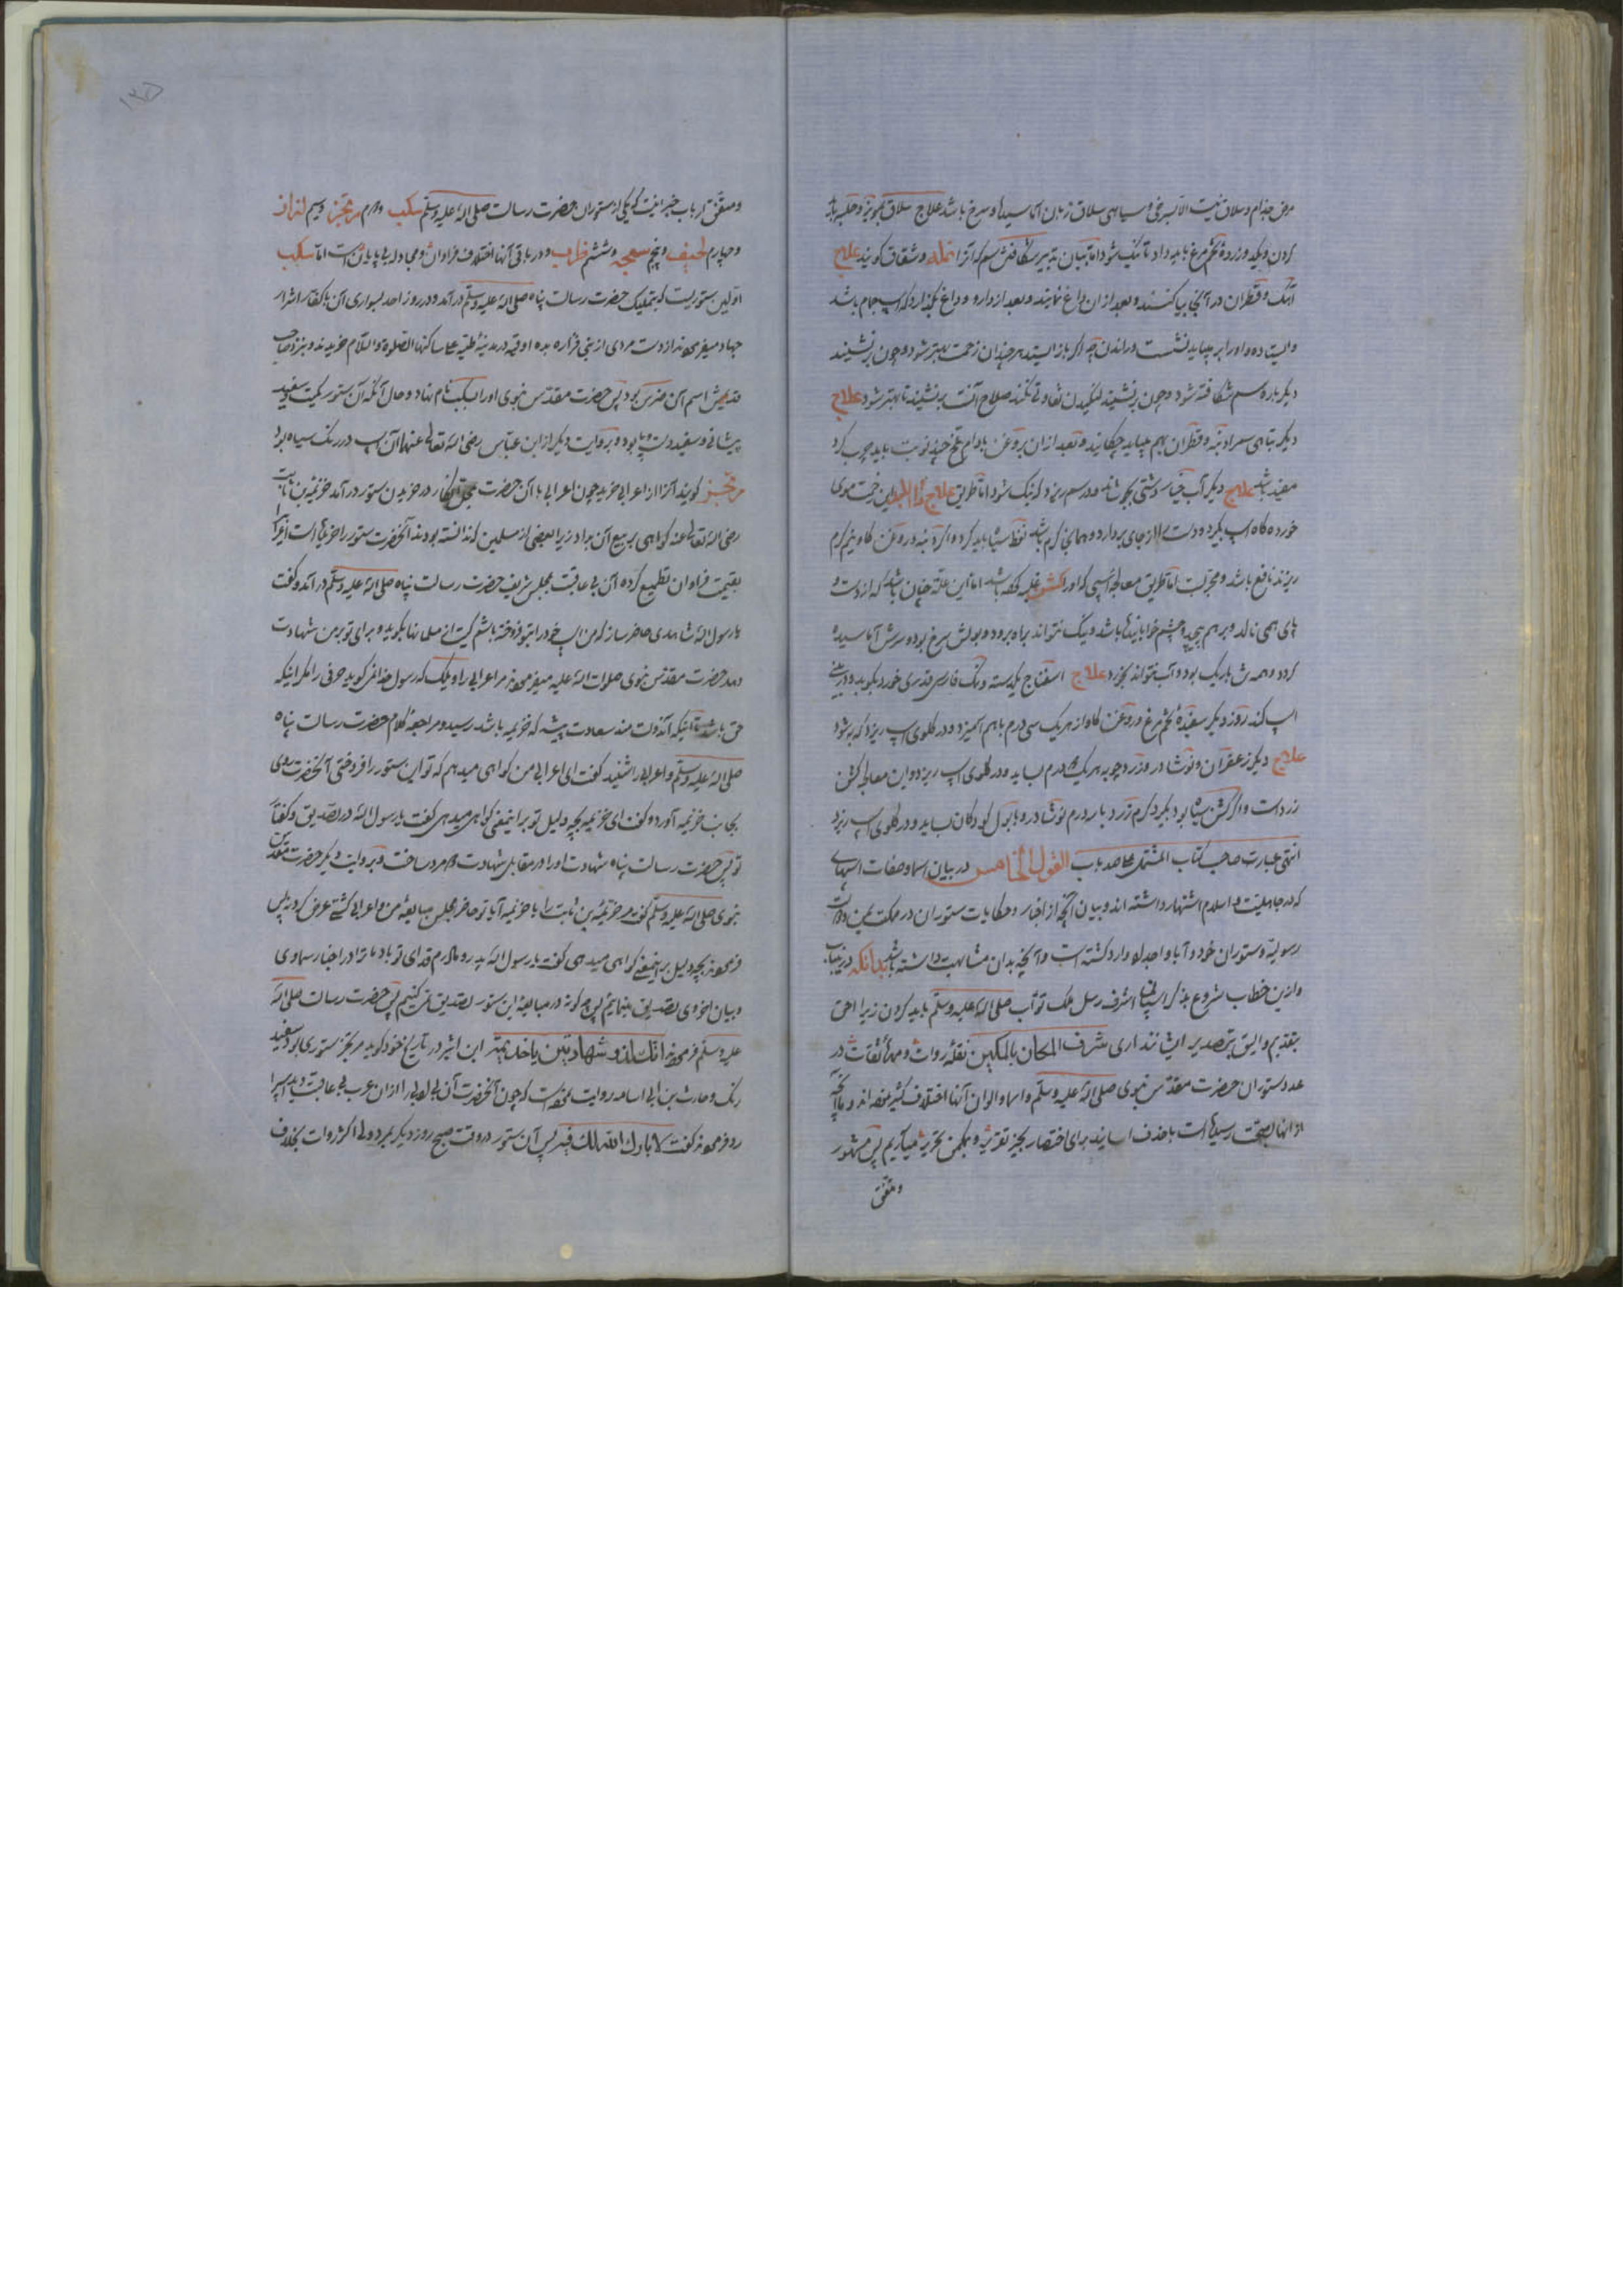 مرض جذام و سلاق نیست الا بسرخی و سیاهی سلاق زبان آماسیده و سرخ باشد علاج سلاق مویز و حلبه باید
کردن و یکبد و زرده تخم مرغ باید داد تا نیک شود اما بیان تدبیر شکافتن سم که آنرا نمله و شقاق کویند علاج
آهک و قطران در آنجا بیاکنند و بعد ازان داغ نمایند و بعد از دارو و داغ بگذارد که اسپ جام باشد
و ایستاده و او را بر نباید نشست و راندن چه اگر باز ایستد هر چندان زحمت بهتر شود و چون بر نشینند
دیگر باره سم شکافته شود و چون بر نشینند لنگیدن تفاوتی نکند صلاح آنست بر ننشینند تا بهتر شود علاج
دیگر و قطران بهم بباید چکانید و بعد ازان بروغن بادام تلخ چند نوبت باید چرب کرد
مفید باشد علاج دیگر آب خیار دشتی بجوشاند و در سم ریزد که نیک شود اما طریق علاج این خست موی
خورده کاه اسپ بگیرد و دست را از جای بردارد و همای گرم باشد نفط سیاه باید کرد و اگر دنبه و روغن کاو نیم گرم
ریزند نافع باشد و مجرّبست اما طریق معالجه اسپی که او را غلبه کند باشد اما این علّة چنان باشد که از دست و
پای همی نالد و بر هم پیچد و چشم خوابانیده باشد و نیک نتواند براه برود و بولش سرخ بود و سرش آماسیده
کردد و همه ش باریک بود و آب نتواند بخورد علاج اسفناج یکدسته و نمک فارسی قدری خورد بکوبد و در بینی
اسپ کند روز دیگر سفیده تخم مرغ و روغن کاو از هر یک سی درم باهم آمیزد و در گلوی اسپ ریزد که به شود
علاج دیگر زعفران و نوشادر و زرد چوبه هر یک ده درم بساید و در گلوی اسپ ریزد و این معالجه کشن
زرد است و اگر کشن سیاه بود بگیرد کرم زرد چهار درم نوشادر و با بول کودکان بساید و در گلوی اسپ ریزد
انتهی عبارت صاحب کتاب المشتمل علی صد باب القول الخامس در بیان اسما و صفات اسپهای
که در جاهلیّت و اسلام اشتهار داشته اند و بیان آنچه از اخبار و حکایات ستوران در مکّت یمن و ولایت
رسولیّه و ستوران خود و آبا و اجداد وارد گشته است و آنچه بدان مشابهت داشته باشد بدانکه درینباب
و ازین خطاب شروع بذکر اسپان اشرف رسل ملک توّاب صلی الله علیه وسلم باید کردن زیرا احق
بتقدیم و الیق بتصدیر ایشانند اری شرف المکان بالمکین نقله روات و مهره ثقات در
عدد ستوران حضرت مقدّس نبوی صلی الله علیه وسلم و اسما و الوان آنها اختلاف کثیر نموده اند و ما آنچه
از آنها بصحّت رسیده است باحذف اسانید برای اختصار بحیز تقریر و بمکمن تحریر میآریم پس مشهور
و متفق
۱۳۵
و متفق ارباب خبر اینست که یکی از ستوران حضرت رسالت صلی الله علیه وسلم سکب و دوم مرتجز و سیم لزاز
و چهارم لحیف و پنجم سبحه و ششم ظرب و در باقی آنها اختلاف فراوان و مجادله بی پایان است اما سکب
اوّلین ستوریست که بتملیک حضرت رسالت پناه صلی الله علیه وسلم درآمد و در روز احد بسواری آن با کفّار اشرار
جهاد میفرمودند از دست مردی از بنی فزاره بده اوقیه در مدینه طیبه علی ساکنها الصلوة والسلام خریدند و بنزد صاحب
قدیمش اسم آن ضرس بود پس حضرت مقدّس نبوی او را بسکب نام نهاد و حال آنکه آن ستور کمیت سفید
پیشانی و سفید دست و پا بود و بروایت دیگر از ابن عبّاس رضی الله تعالی عنهما آن اسپ در رنگ سیاه بود
مرتجز گویند آنرا از اعرابی خرید چون اعرابی با آن حضرت انکار در خریدن ستور درآمد خزیمه بن ثابت
رضی الله تعالی عنه گواهی بر بیع آن بداد زیرا بعضی از مسلمین ندانسته بودند آنحضرت ستور را خریده است اعرابی را
بقیمت فراوان تطمیع کرده آن بی عاقبت بمجلس شریف حضرت رسالت پناه صلی الله علیه وسلم درآمد و گفت
یا رسول الله شاهدی حاضر ساز که من اسپ خود را بتو فروخته باشم گیست از مسلمانان بگوید و برای تو بر من شهادت
دهد حضرت مقدّس نبوی صلوات الله علیه میفرمودند مر اعرابی را ویلک که رسول خدا نمی گوید حرفی را مگر اینکه
حق باشد تا اینکه آندولت مند سعادت پیشه که خزیمه باشد رسید و مراجعه کلام حضرت رسالت پناه
صلی الله علیه وسلم و اعرابی را شنید گفت ای اعرابی من گواهی میدهم که تو این ستور را فروختی آنحضرت روی
بجانب خزیمه آورد و گفت ای خزیمه بچه دلیل تو بر اینمعنی گواهی میدهی گفت یا رسول الله در تصدیق و گفتار
تو پس حضرت رسالت پناه شهادت او را در مقابل شهادت دو مرد ساخت و بروایت دیگر حضرت مقدّس
نبوی صلی الله علیه وسلم گفت مر خزیمه بن ثابت را یا خزیمه آیا تو حاضر مجلس مبایعه من و اعرابی گشتی عرض کرد نه پس
فرمودند بچه دلیل بر اینمعنی گواهی میدهی گفت یا رسول الله پدر و مادرم فدای تو باد ما ترا در اخبار سماوی
و بیان اخروی تصدیق مینمائیم پس چه گونه در مبایعه این ستور تصدیق نمی کنیم پس حضرت رسالت صلی الله
علیه وسلم فرمودند انک لذو شهادتین یا خزیمة ابن اثیر در تاریخ خود گوید مرتجز ستوری بود سفید
رنگ و حارث بن ابی اسامه روایت نموده است که چون آنحضرت آن را ازان عرب بی عاقبت
رد فرمودند گفت لا بارک الله لک فیه پس آن ستور در وقت صبح روز دیگر بمرد ولی اکثر روات بخلاف